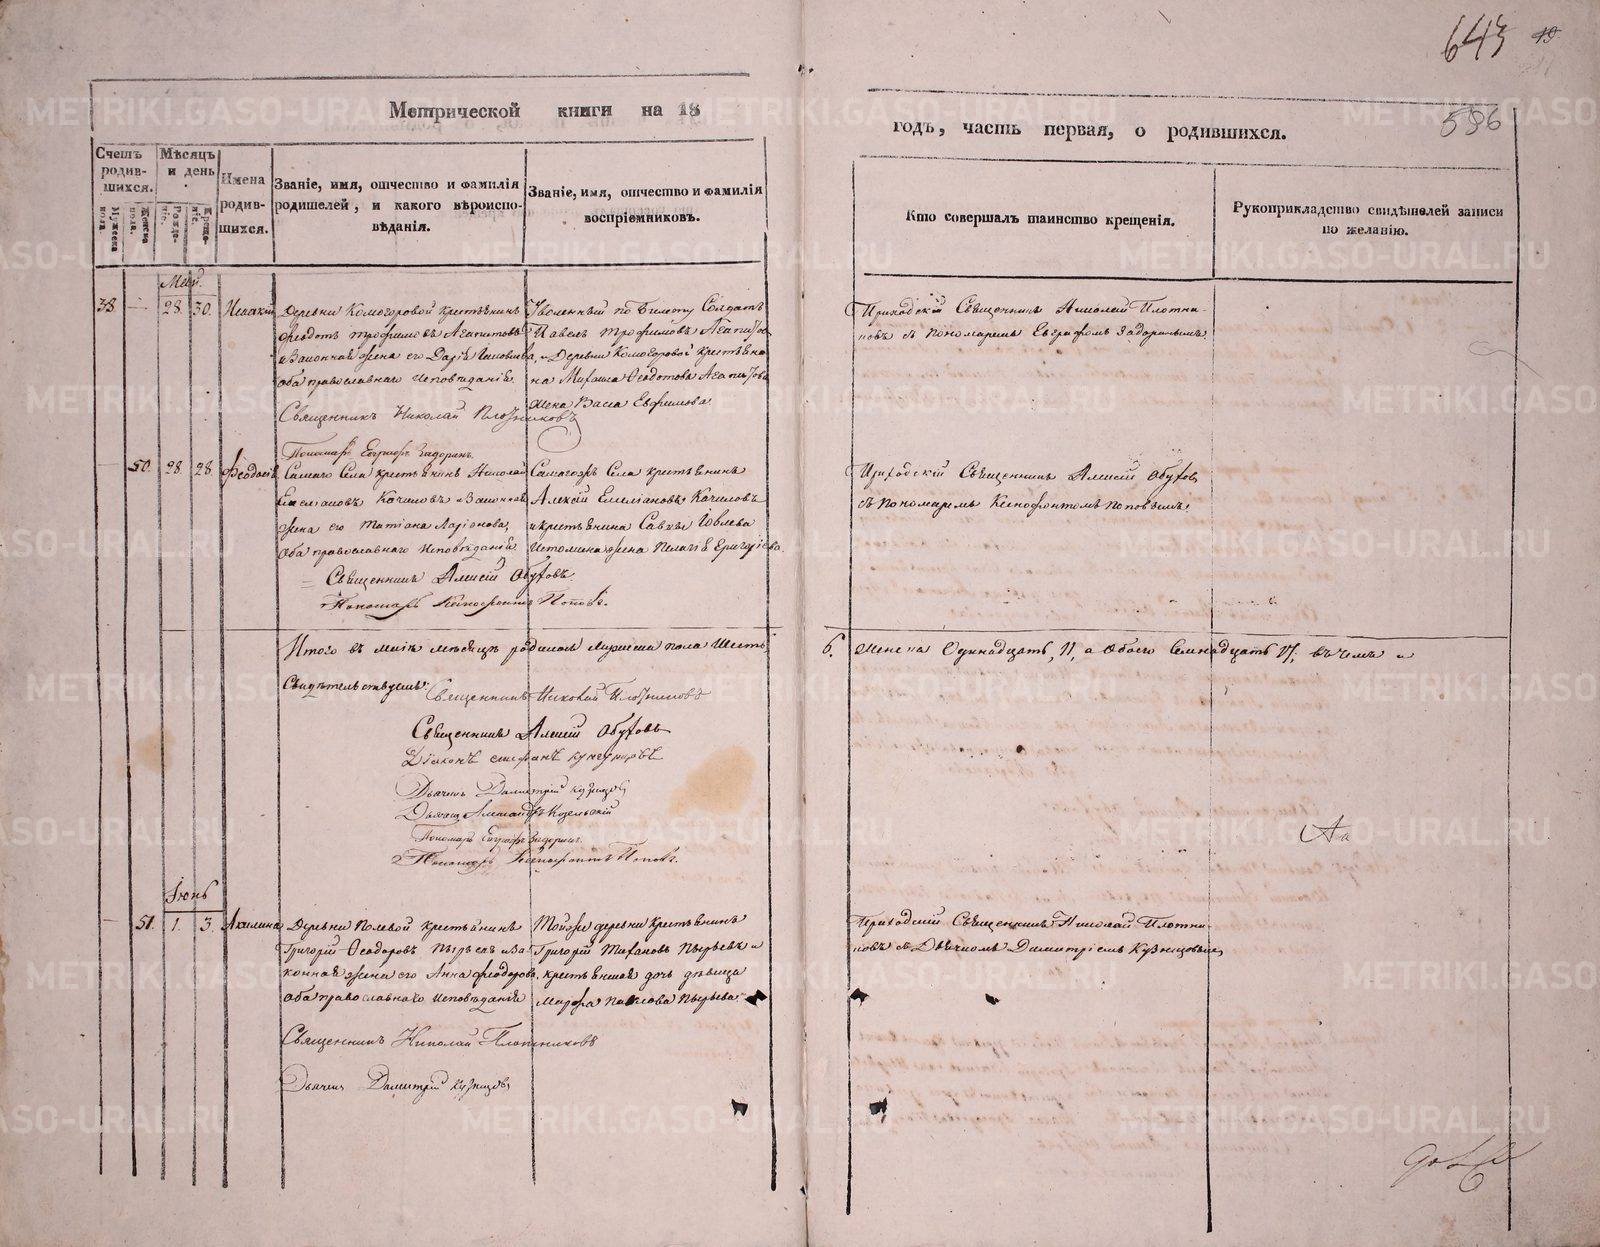 643
19
596
Метрической книги на 18
годъ, часть первая, о родившихся.
Счетъ родив-шихся.
Мужеска пола.
Женска пола.
Мѣсяцъ и день
Рожде-нія.
Креще-нія.
Имена родив-шихся.
Званіе, имя, отчество и фамилія родителей, и какого вѣроиспо-вѣданія.
Званіе, имя, отчество и фамилія воспріемниковъ.
Кто совершалъ таинство крещенія.
Рукоприкладство свидѣтелей записи по желанію.
Май.
38. — 28. 30. Исаакій
Деревни Комогоровой крестьянинъ
Федотъ Трофимовъ Агапитовъ
и законная жена его Дарія
оба православнаго исповѣданія.
Уволенный по билету Солдатъ
Павелъ Трофимовъ Агапитовъ
и Деревни Комогоровой крестьяни-
на Ѳеодотова Агапитова
жена Васса Ефимова.
Приходскій Священникъ Николай Плотни-
ковъ съ Пономаремъ Евграфомъ Задоринымъ.
Священникъ Николай Плотниковъ
Пономарь Евграфъ Задоринъ.
— 50. 28. 28. Феодосія
Самаго Села крестьянинъ Николай
Емельяновъ Качиловъ и законная
жена его Татіана Ларіонова,
оба православнаго исповѣданія.
Самагожъ Села крестьянинъ
Алексій Емеліановъ Качиловъ
и крестьянина Саввы Іовлева
Истомина жена Пелагія Григорьева.
Приходскій Священникъ Алексій Обуховъ
съ Пономаремъ Ксенофонтомъ Поповымъ.
Священникъ Алексій Обуховъ.
Пономарь Ксенофонтъ Поповъ.
Итого въ маіѣ мѣсяцѣ родилось мужеска пола шесть,
6. женска Одиннадцать, 11, а обоего Семнадцать 17, въ чемъ и
Свидѣтельствуемъ:
Священникъ Николай Плотниковъ
Священникъ Алексій Обуховъ
Діаконъ Стефанъ
Дьячекъ Димитрій Кузнецовъ
Дьячекъ Александръ Козельскій
Пономарь Евграфъ Задоринъ.
Пономарь Ксенофонтъ Поповъ.
Іюнь
— 51. 1. 3. Акилина
Деревни Полевой крестьянинъ
Григорій Ѳеодоровъ Пырьевъ и за-
конная жена его Анна Феодорова,
оба православнаго исповѣданія
Тойже деревни крестьянинъ
Григорій Пырьевъ и
крестьянская дочь дѣвица
Марфа Павлова Пырьева.
Приходскій Священникъ Николай Плотни-
ковъ съ Дьячкомъ Димитріемъ Кузнецовымъ
Священникъ Николай Плотниковъ
Дьячекъ Димитрій Кузнецовъ
METRIKI.GASO-URAL.RU